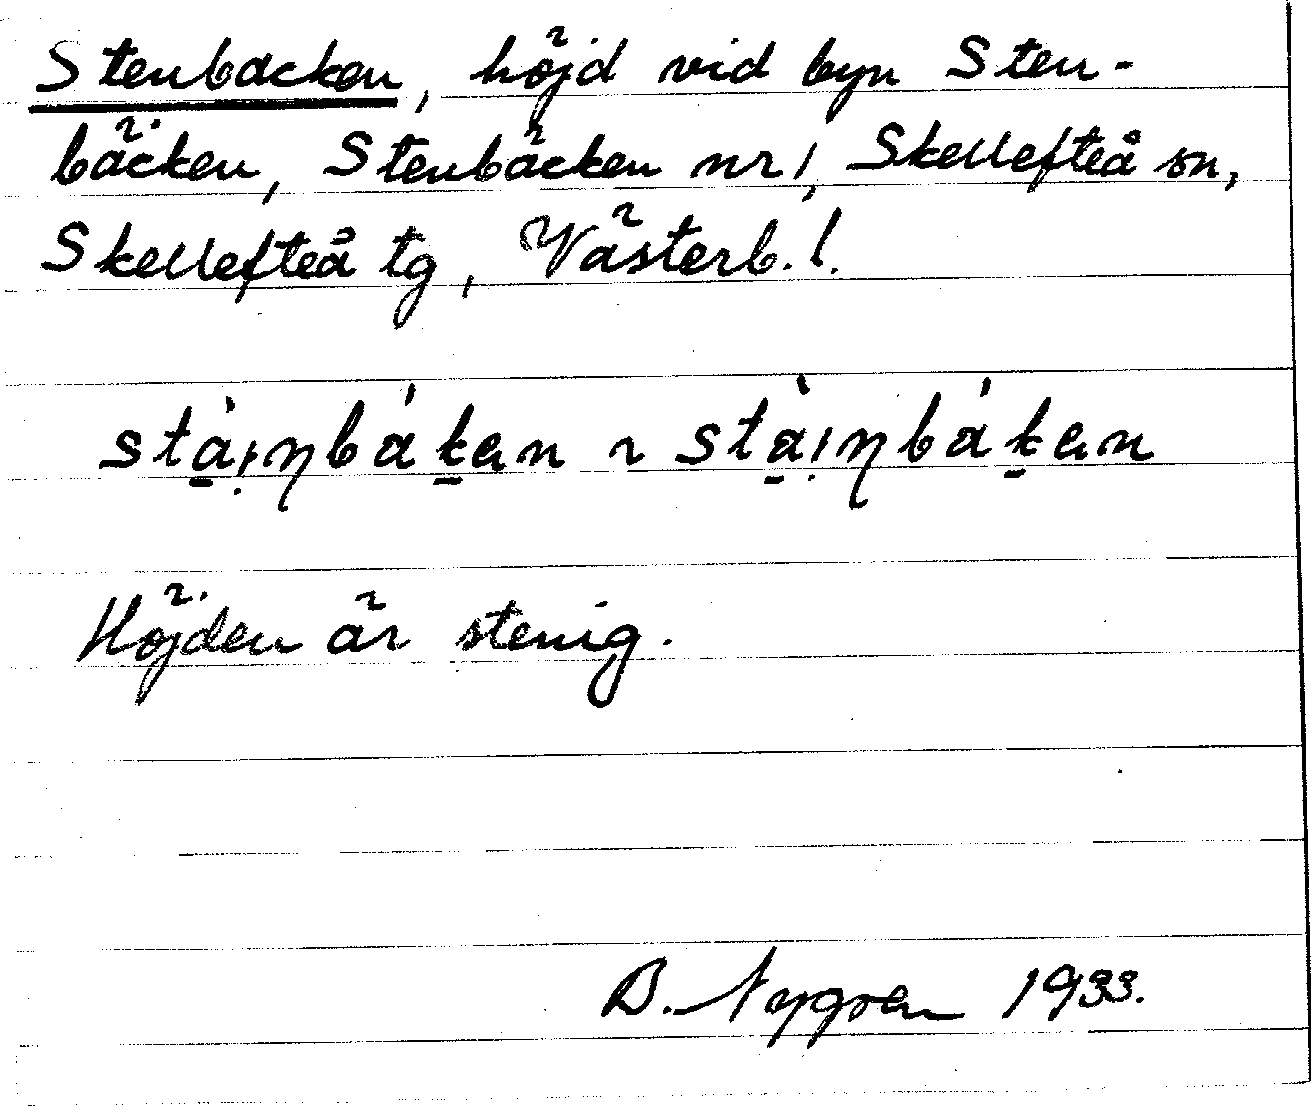 Stenbacken, höjd vid byn Sten-
bäcken, Stenbäcken nr 1, Skellefteå sn,
Skellefteå tg, Västerb. l.
stà̱ị̀ŋbáḵen ~ stà̱ị̀ŋbáḵen
Höjden är stenig.
B. Nygren 1933.